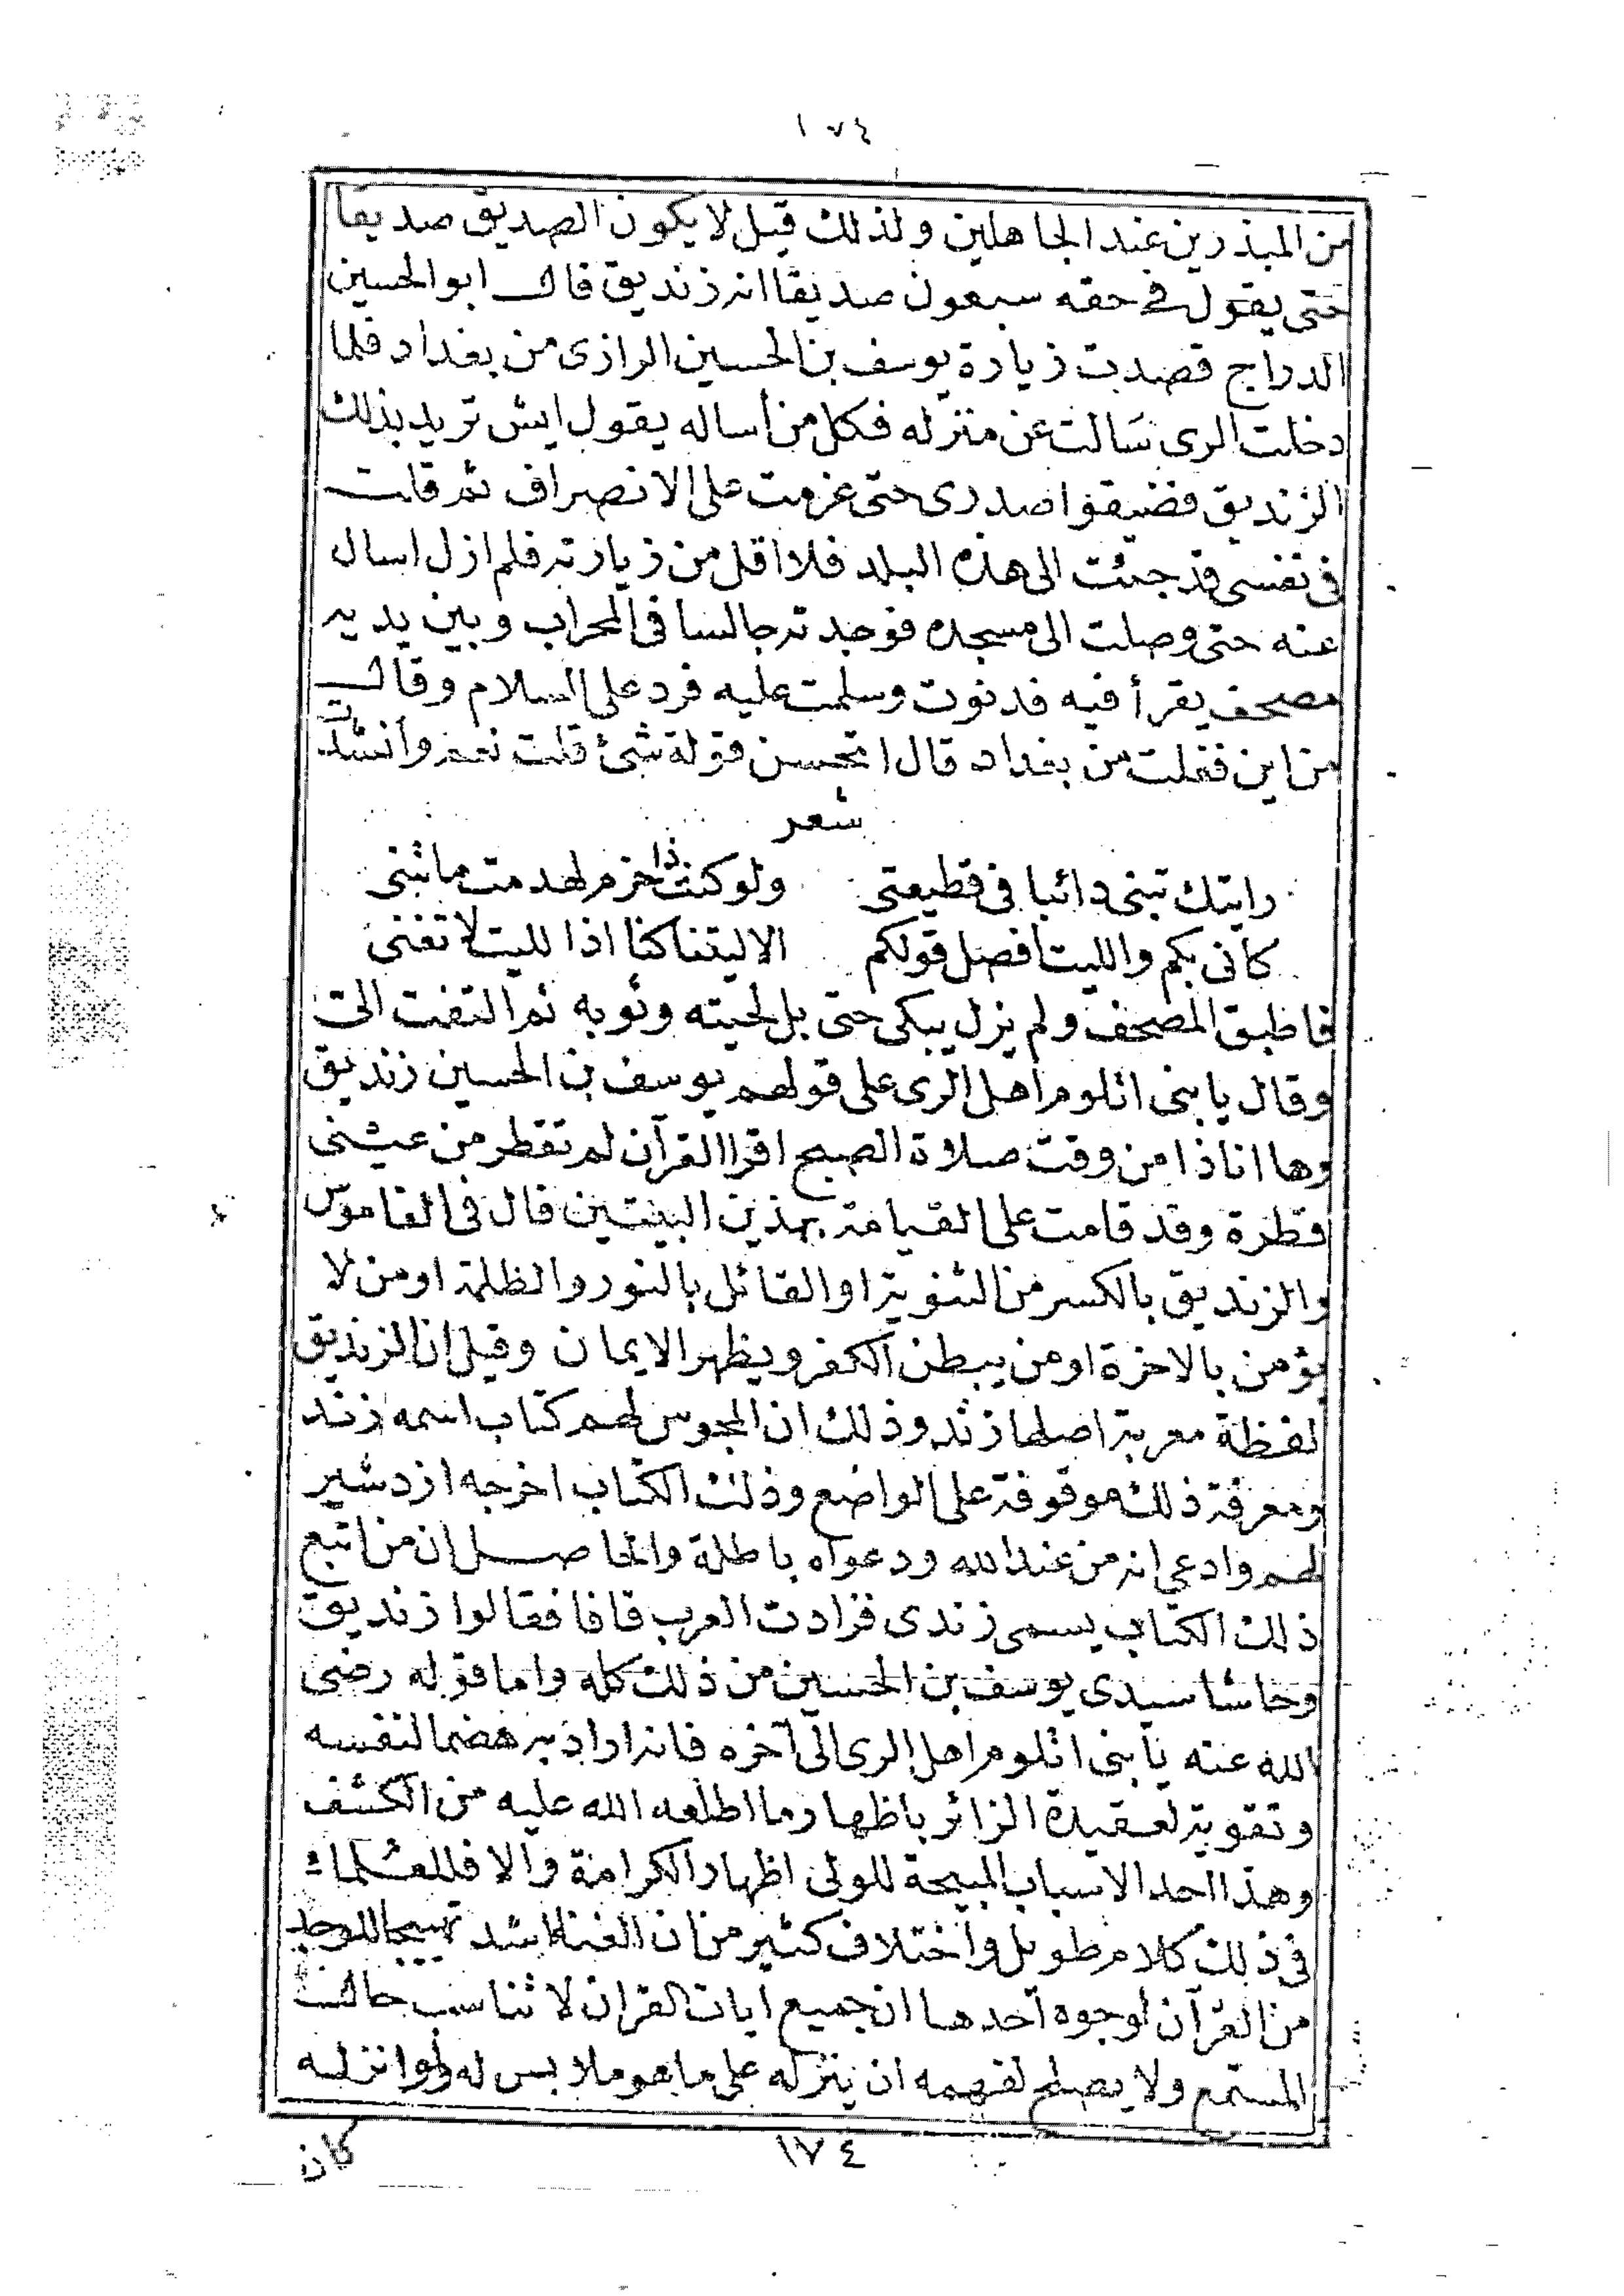 ١٧٤
من المبذرين عند الجاهلين ولذلك قيل لا يكون الصديق صديقا
حتى يقول فى حقه سبعون صديقا انه زنديق قال ابو الحسين
الدراج قصدت زيارة يوسف بن الحسين الرازى من بغداد فلما
دخلت الرى سالت عن منزله فكل من أساله يقول ايش تريد بذلك
الزنديق فضيقوا صدرى حتى عزمت على الانصراف ثم قلت
فى نفسى قد جئت الى هذه البلد فلا اقل من زيارته فلم ازل اسال
عنه حتى وصلت الى مسجده فوجدته جالسا فى المحراب وبين يديه
مصحف يقرأ فيه فدنوت وسلمت عليه فرد على السلام وقال
من اين فقلت من بغداد قال اتحسن قولة شئ قلت نعم وأنشدت
شعر
رايتك تبنى دائبا فى قطيعتى ولو كنت ذا حزم لهدمت ما تبنى
كانى بكم والليت أفضل قولكم الا ليتنا كنا اذا لليت لا تغنى
فاطبق المصحف ولم يزل يبكى حتى بل لحيته وثوبه ثم التفت الىّ
وقال يا بنى اتلوم اهل الرى على قولهم يوسف بن الحسين زنديق
وها انا ذا من وقت صلاة الصبح اقرا القرآن لم تقطر من عينى
قطرة وقد قامت على القيامة بهذين البيتين قال فى القاموس
والزنديق بالكسر من الثنوية او القائل بالنور والظلمة او من لا
يؤمن بالاخرة او من يبطن الكفر ويظهر الايمان وقيل ان الزنديق
لفظة معربة اصلها زند وذلك ان المجوس لهم كتاب اسمه زند
ومعرفة ذلك موقوفة على الواضع وذلك الكتاب اخرجه ازدشير
لهم وادعي انه من عند الله ودعواه باطلة والحاصل ان من اتبع
ذلك الكتاب يسمى زندى فزادت العرب قافا فقالوا زنديق
وحاشا سيدى يوسف بن الحسين من ذلك كله واما قوله رضى
الله عنه يا بنى اتلوم اهل الرى الى آخره فانه اراد به هضما لنفسه
وتقوية لعقيدة الزائر باظهار ما اطلعه الله عليه من الكشف
وهذا احد الاسباب المبيحة للولى اظهار الكرامة والا فللعلماء
فى ذلك كلام طويل واختلاف كثير من ان الغناء اشد تهييجا للوجد
من القرآن لوجوه احدها ان جميع ايات القران لا تناسب حالت
المستمع ولا يصلح لفهمه ان ينزله على ما هو ملابس له ولو انزله
كان
١٧٤